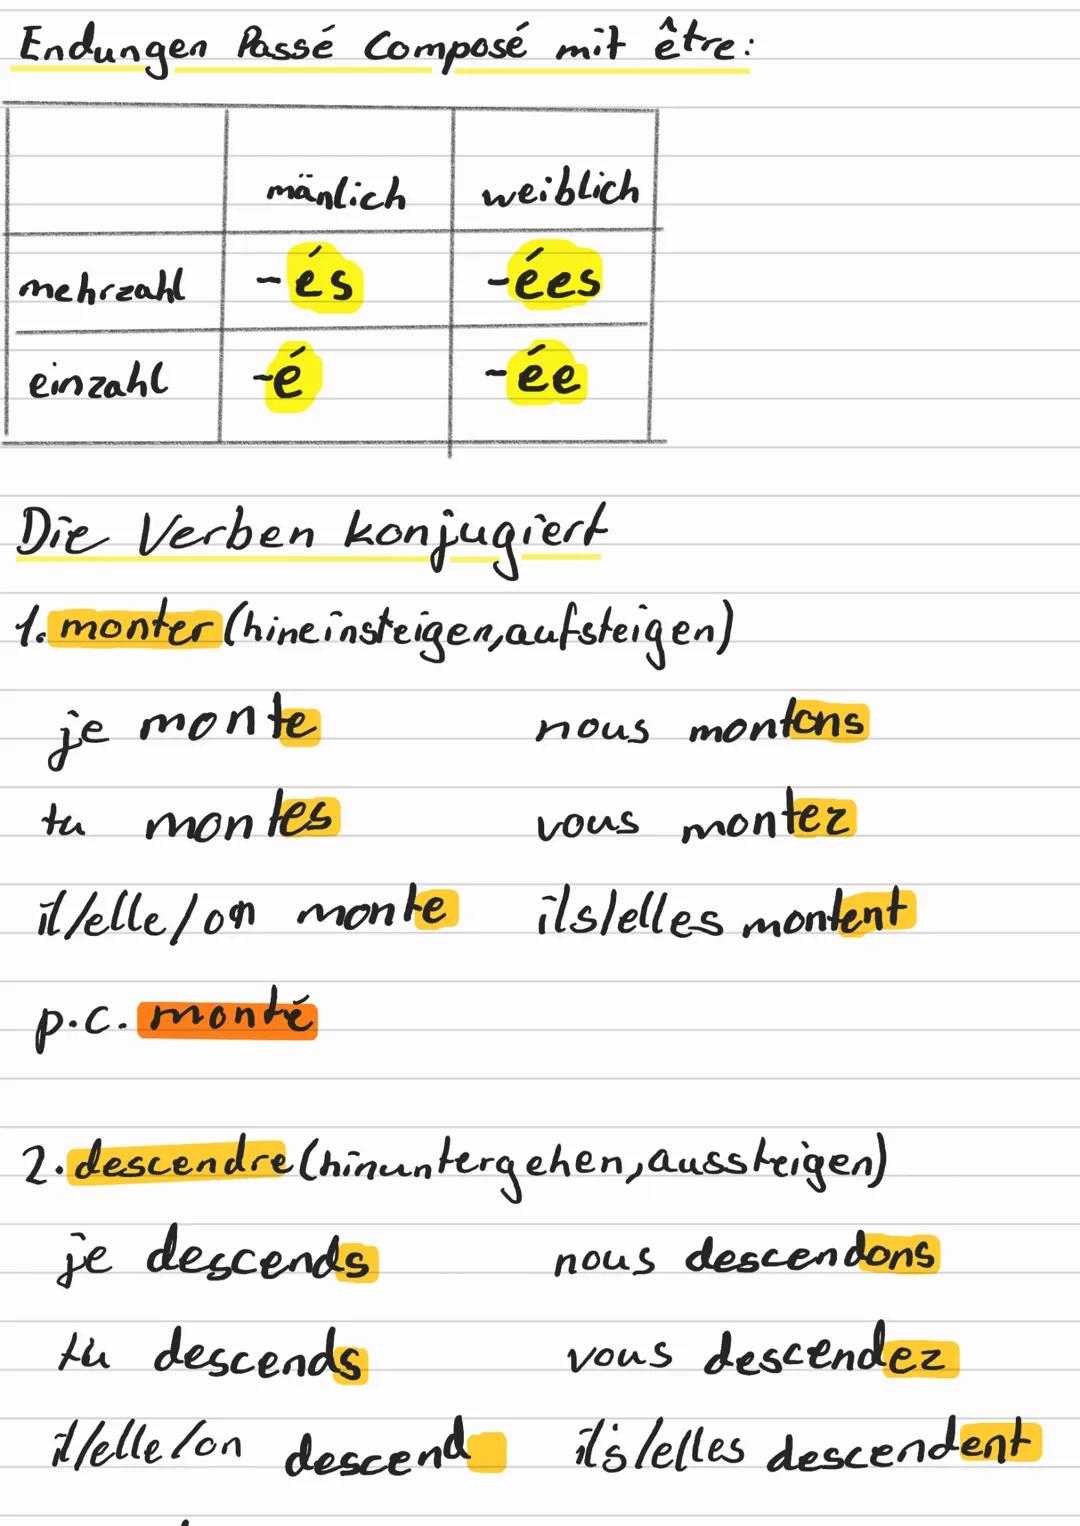 Endungen Passé Composé mit être:
mänlich weiblich
mehrzahl -és -ées
einzahl -é -ée
Die Verben konjugiert
1. monter (hineinsteigen, aufsteigen)
je monte nous montons
tu montes vous montez
il/elle/on monte ils/elles montent
p.c. monté
2. descendre (hinuntergehen, aussteigen)
je descends nous descendons
tu descends vous descendez
il/elle/on descend ils/elles descendent